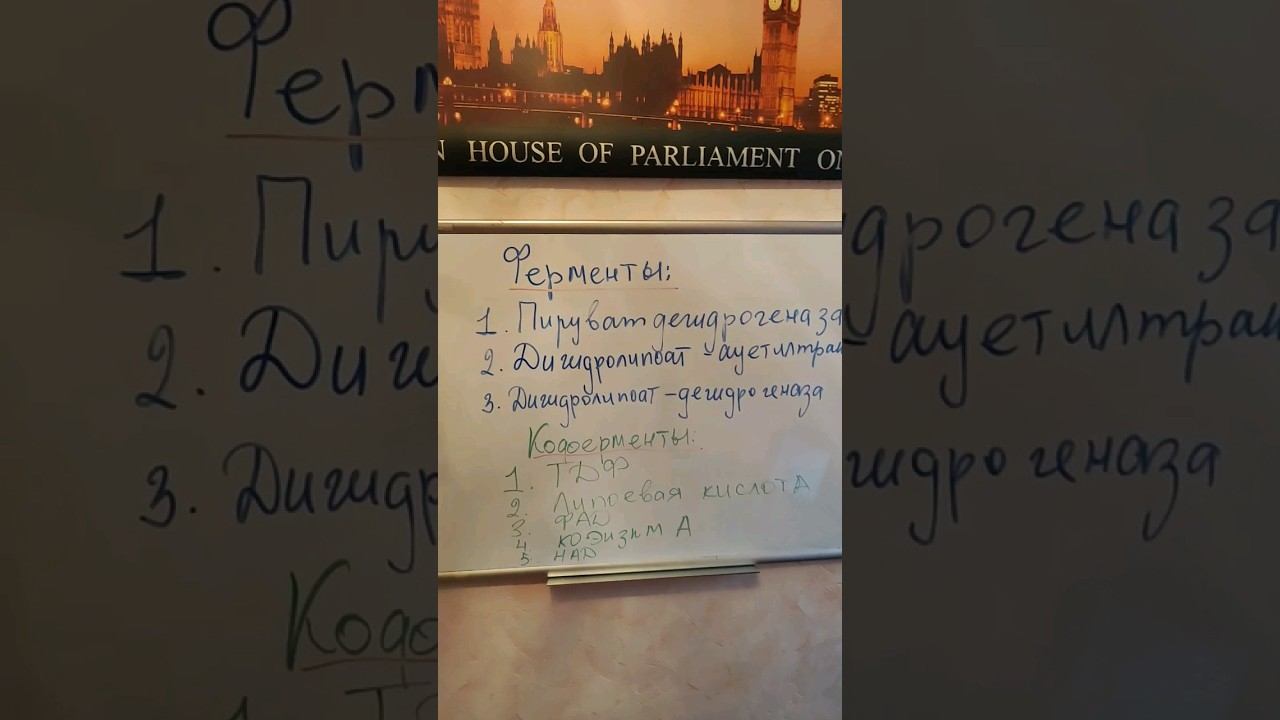 N HOUSE OF PARLIAMENT ON
Ферменты:
1. Пируватдегидрогеназа
2. Дигидролипоат-ацетилтран
3. Дигидролипоат-дегидрогеназа
Кофферменты:
1. ТДФ
2. Липоевая кислота
3. ФАД
4 коэнзим А
5 НАД